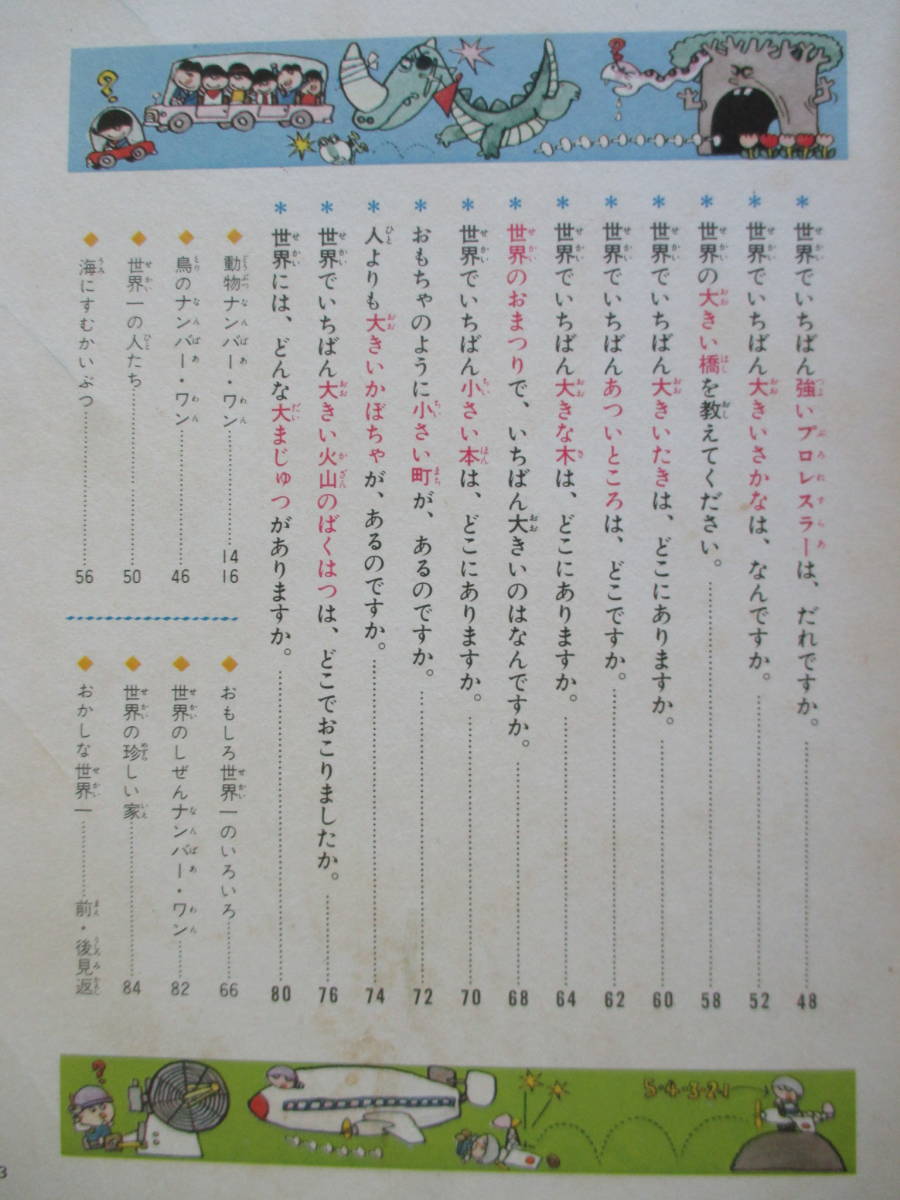 ＊世界でいちばん強いプロレスラーは、だれですか。……48
＊世界でいちばん大きいさかなは、なんですか。……52
＊世界の大きい橋を教えてください。……58
＊世界でいちばん大きいたきは、どこにありますか。……60
＊世界でいちばんあついところは、どこですか。……62
＊世界でいちばん大きな木は、どこにありますか。……64
＊世界のおまつりで、いちばん大きいのはなんですか。……68
＊世界でいちばん小さい本は、どこにありますか。……70
＊おもちゃのように小さい町が、あるのですか。……72
＊人よりも大きいかぼちゃが、あるのですか。……74
＊世界でいちばん大きい火山のばくはつは、どこでおこりましたか。……76
＊世界には、どんな大まじゅつがありますか。……80
◆動物ナンバー・ワン……14 16
◆鳥のナンバー・ワン……46
◆世界一の人たち……50
◆海にすむかいぶつ……56
◆おもしろ世界一のいろいろ……66
◆世界のしぜんナンバー・ワン……82
◆世界の珍しい家……84
◆おかしな世界一……前・後見返
5・4・3・2・1
3